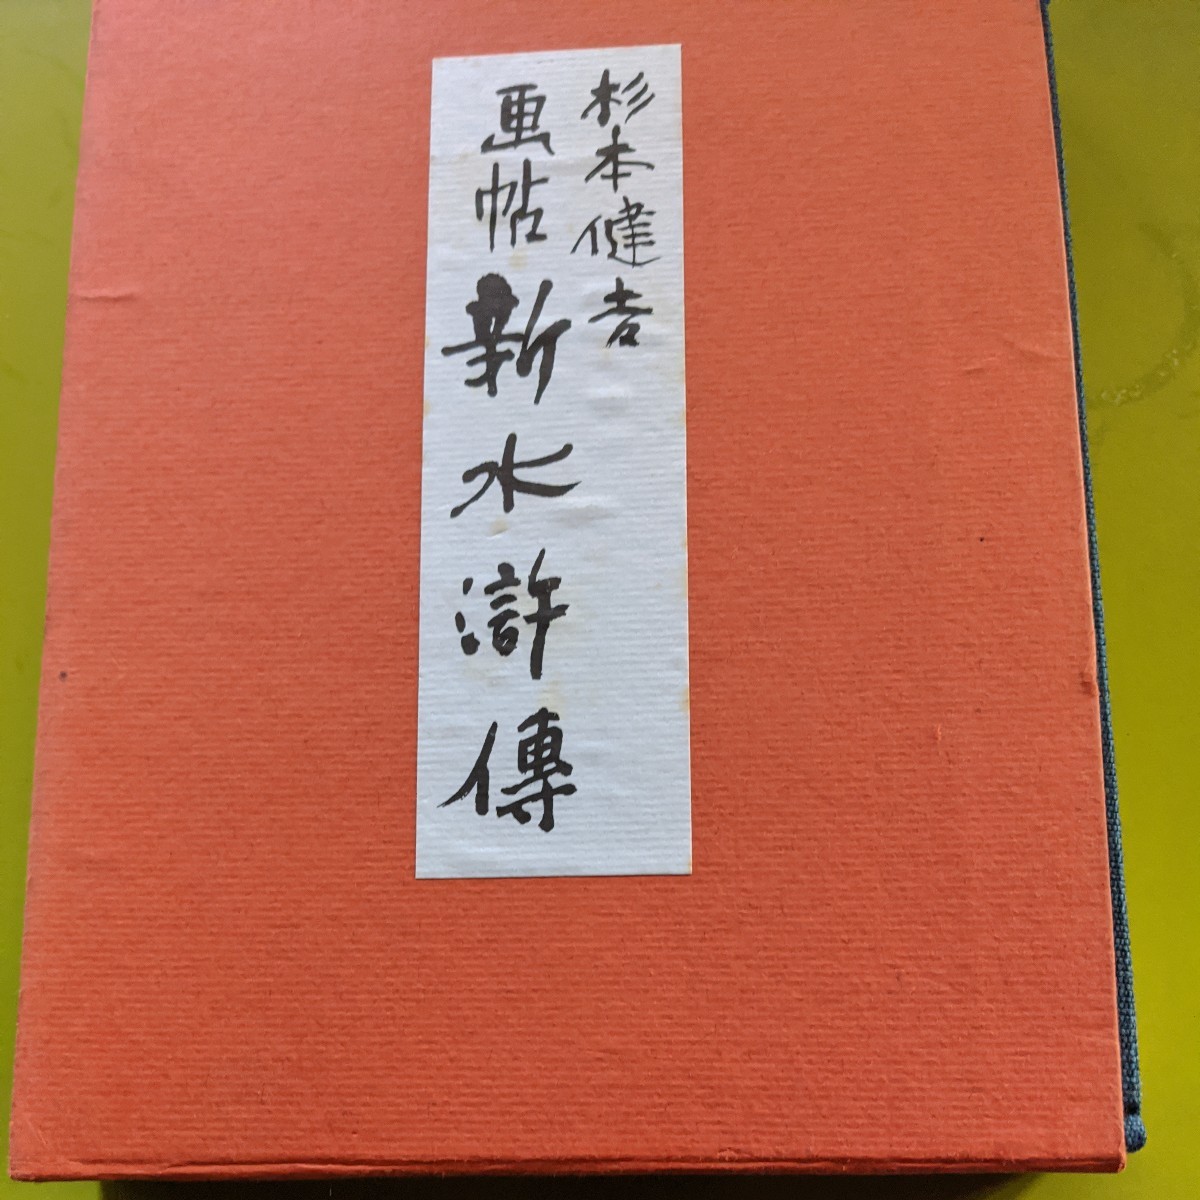 杉本健吉
画帖新水滸傳